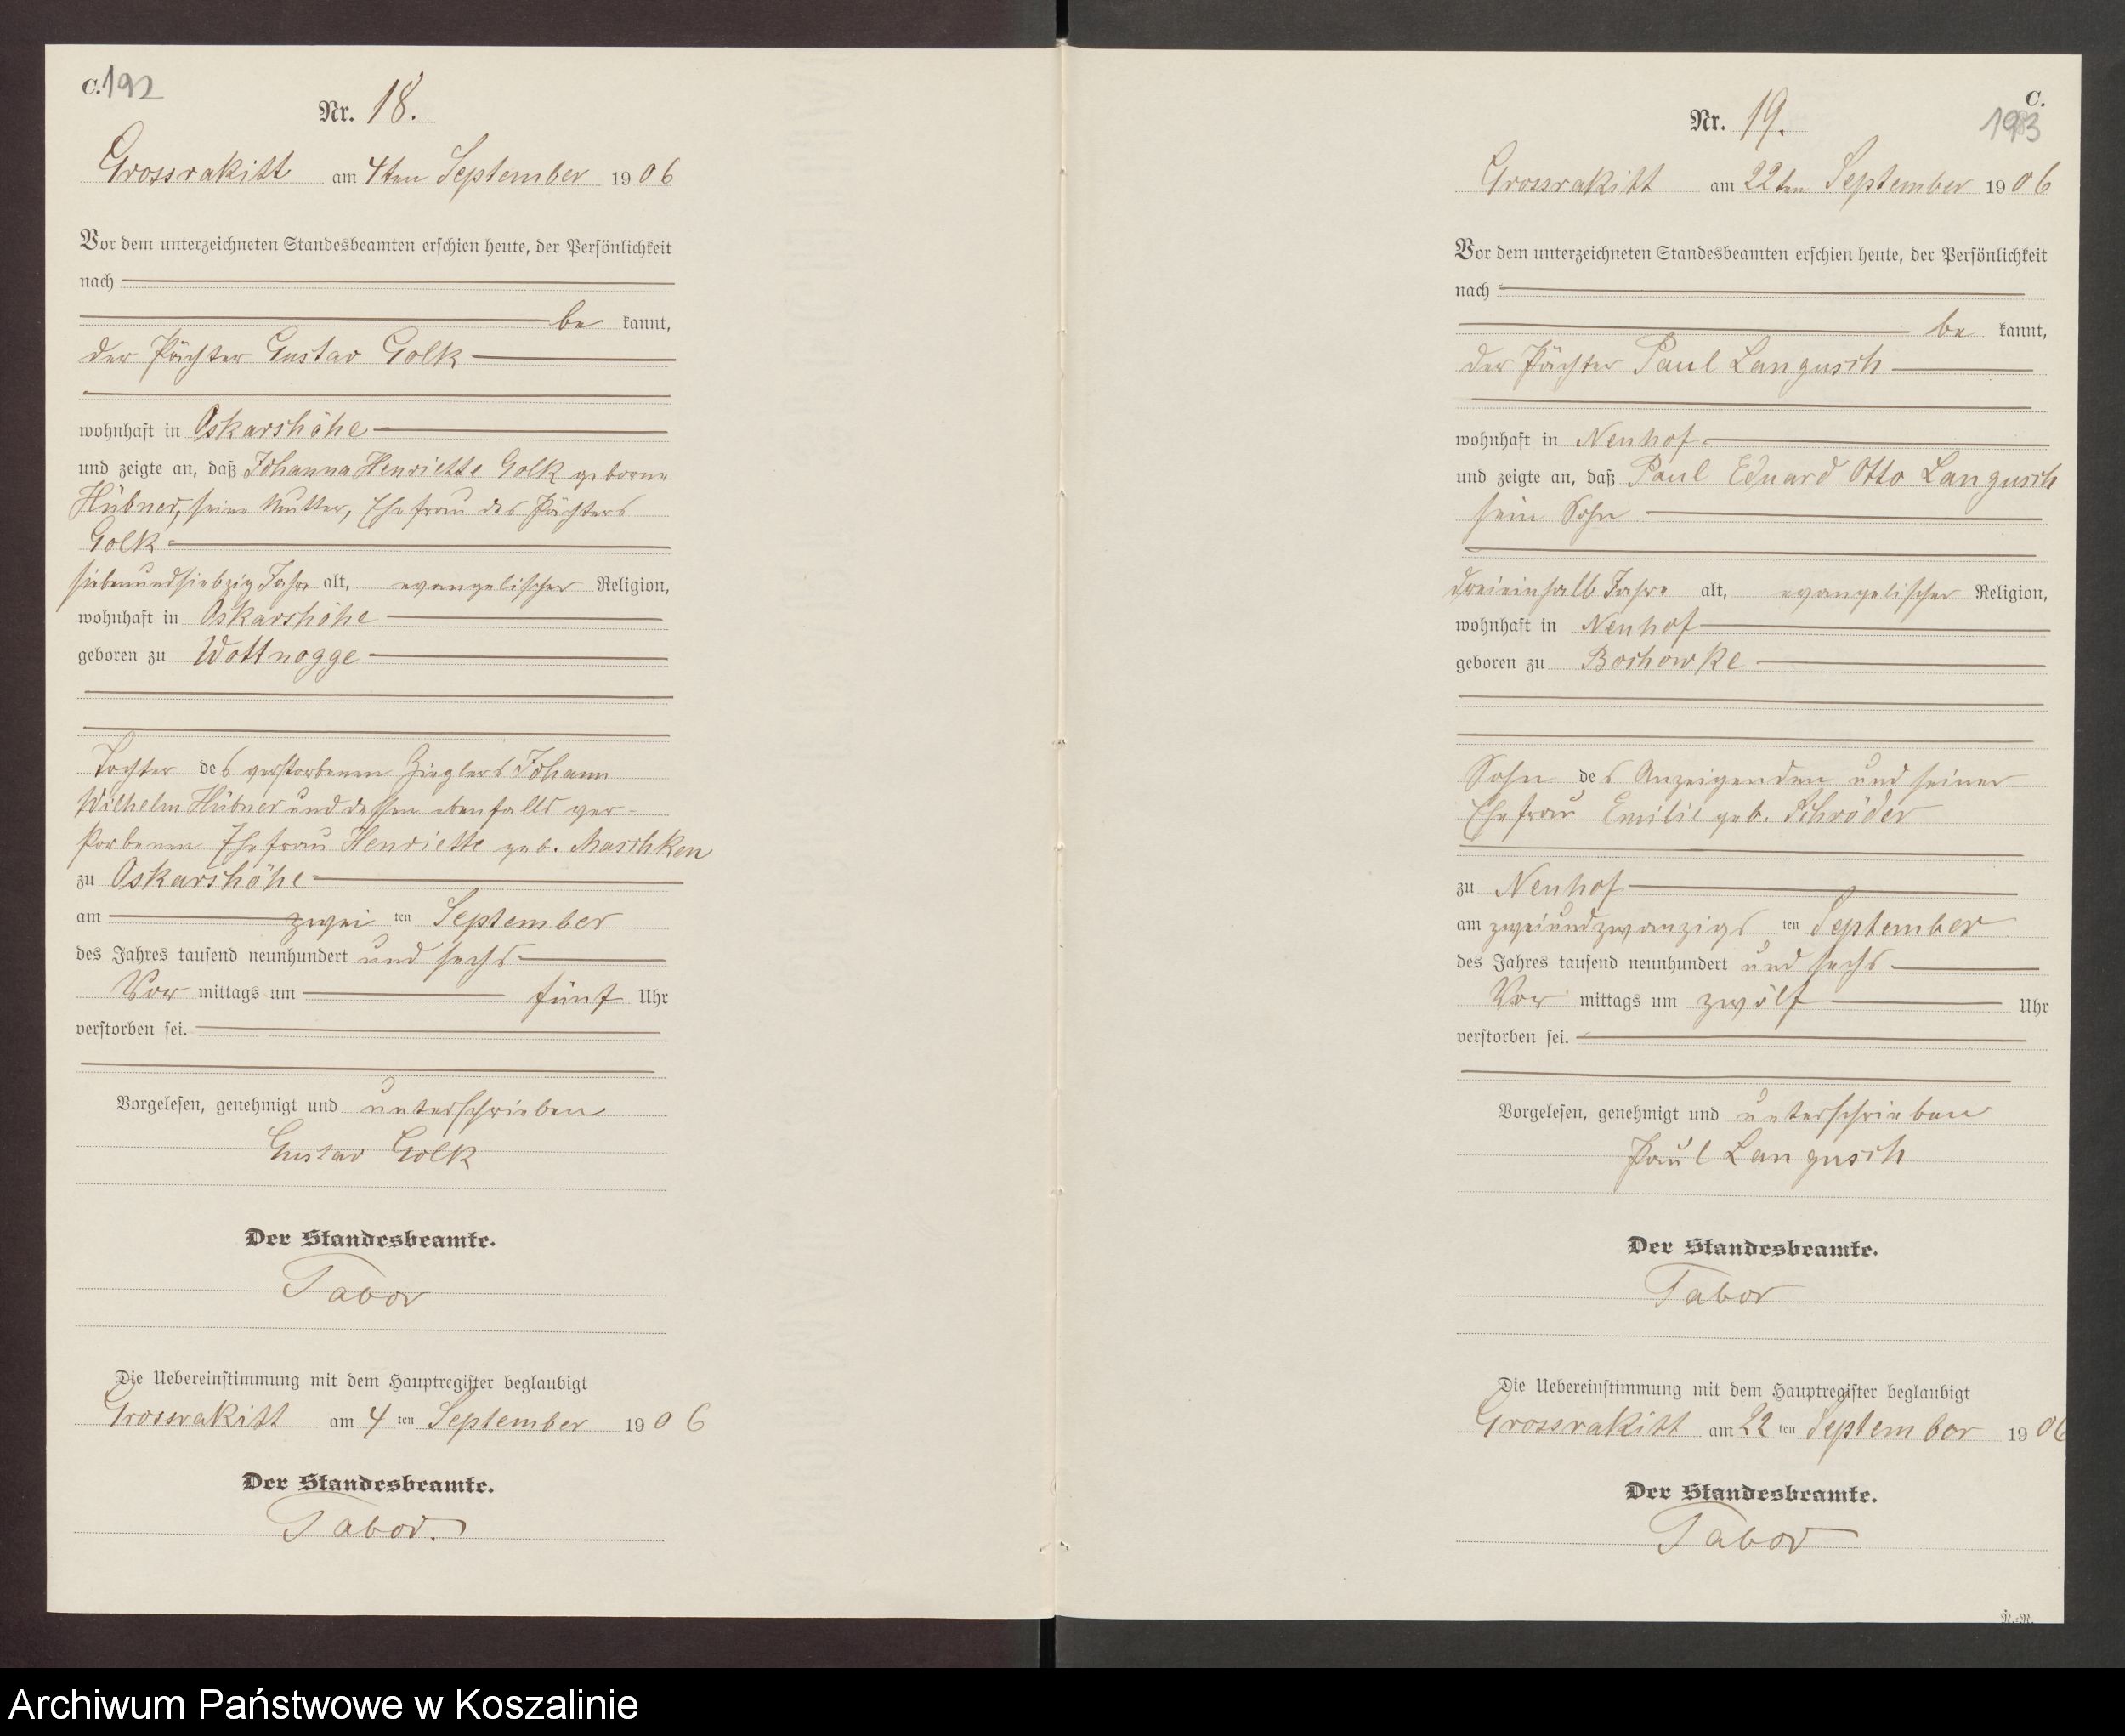 C. 192
Nr. 18.
Grossrakitt am 4ten September 1906
Vor dem unterzeichneten Standesbeamten erschien heute, der Persönlichkeit
nach
be kannt,
der Pächter Gustav Golk
wohnhaft in Oskarshöhe
und zeigte an, daß Johanna Henriette Golk geborne
Hübner, seine Mutter, Ehefrau des Pächters
Golk
siebenundsiebzig Jahre alt, evangelischer Religion,
wohnhaft in Oskarshöhe
geboren zu Wottnogge
Tochter des verstorbenen Zieglers Johann
Wilhelm Hübner und dessen ebenfalls ver-
storbenen Ehefrau Henriette geb. Maschken
zu Oskarshöhe
am zwei ten September
des Jahres tausend neunhundert und sechs
Vor mittags um fünf Uhr
verstorben sei.
Vorgelesen, genehmigt und unterschrieben
Gustav Golk
Der Standesbeamte.
Tabor
Die Uebereinstimmung mit dem Hauptregister beglaubigt
Grossrakitt am 4 ten September 1906
Der Standesbeamte.
Tabor.
C.
193
Nr. 19.
Grossrakitt am 22ten September 1906
Vor dem unterzeichneten Standesbeamten erschien heute, der Persönlichkeit
nach
be kannt,
der Pächter Paul Langusch
wohnhaft in Neuhof
und zeigte an, daß Paul Eduard Otto Langusch
sein Sohn
dreieinhalb Jahre alt, evangelischer Religion,
wohnhaft in Neuhof
geboren zu Bochowke
Sohn des Anzeigenden und seiner
Ehefrau Emilie geb. Schröder
zu Neuhof
am zweiundzwanzigs ten September
des Jahres tausend neunhundert und sechs
Vor mittags um zwölf Uhr
verstorben sei.
Vorgelesen, genehmigt und unterschrieben
Paul Langusch
Der Standesbeamte.
Tabor
Die Uebereinstimmung mit dem Hauptregister beglaubigt
Grossrakitt am 22 ten September 1906
Der Standesbeamte.
Tabor
R.-R.
Archiwum Państwowe w Koszalinie